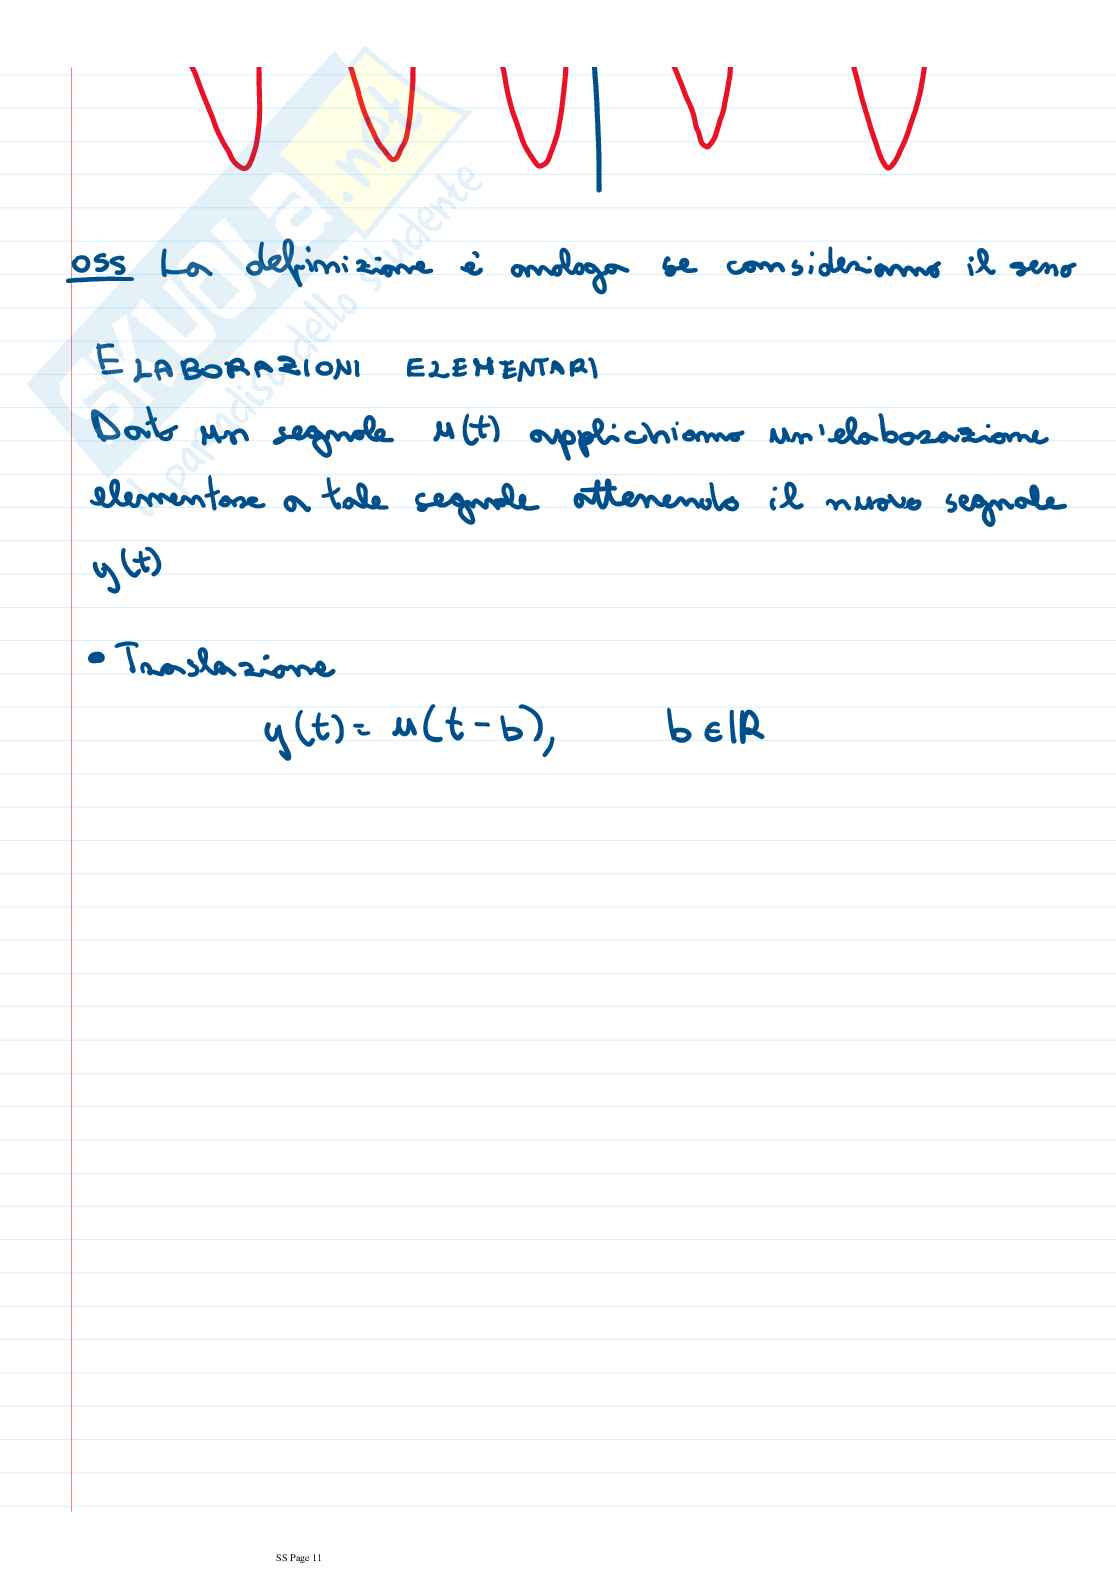 SKUOLA.net
il paradiso dello studente
oss La definizione è analoga se consideriamo il seno
ELABORAZIONI ELEMENTARI
Dato un segnale u(t) applichiamo un'elaborazione
elementare a tale segnale ottenendo il nuovo segnale
y(t)
• Traslazione
y(t) = u(t-b), b ∈ ℝ
SS Page 11